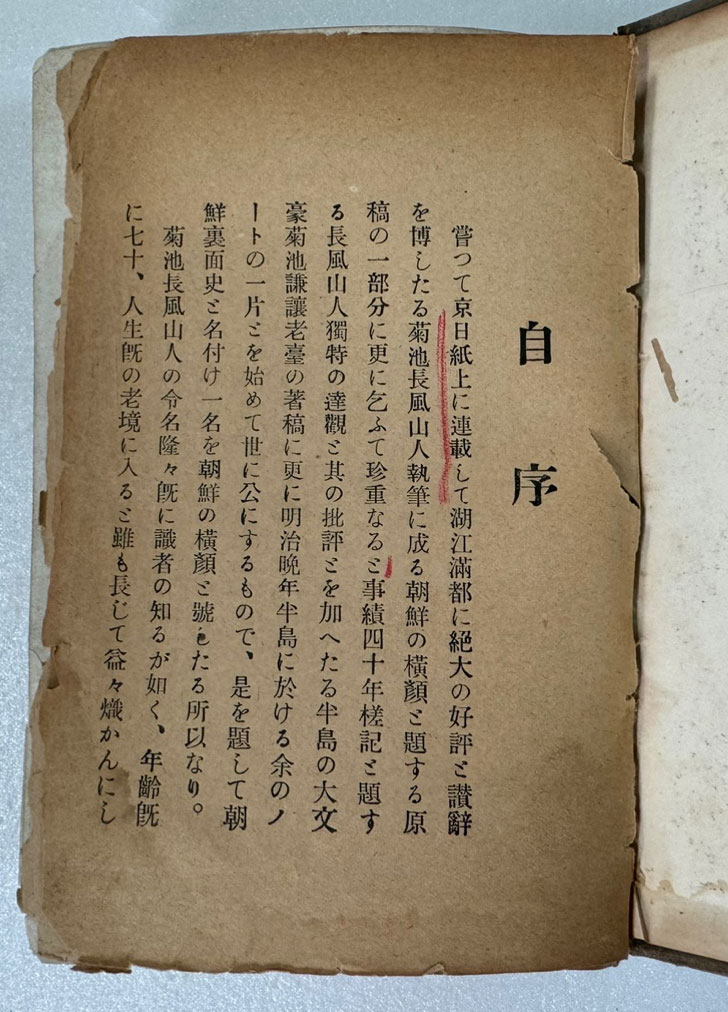 自序
嘗つて京日紙上に連載して湖江滿都に絕大の好評と讃辭
を博したる菊池長風山人執筆に成る朝鮮の橫顏と題する原
稿の一部分に更に乞ふて珍重なると事績四十年槎記と題す
る長風山人獨特の達觀と其の批評とを加へたる半島の大文
豪菊池謙讓老臺の著稿に更に明治晚年半島に於ける余のノ
ートの一片とを始めて世に公にするもので、是を題して朝
鮮裏面史と名付け一名を朝鮮の橫顏と號したる所以なり。
菊池長風山人の令名隆々既に識者の知るが如く、年齡既
に七十、人生既の老境に入ると雖も長じて益々熾かんにし